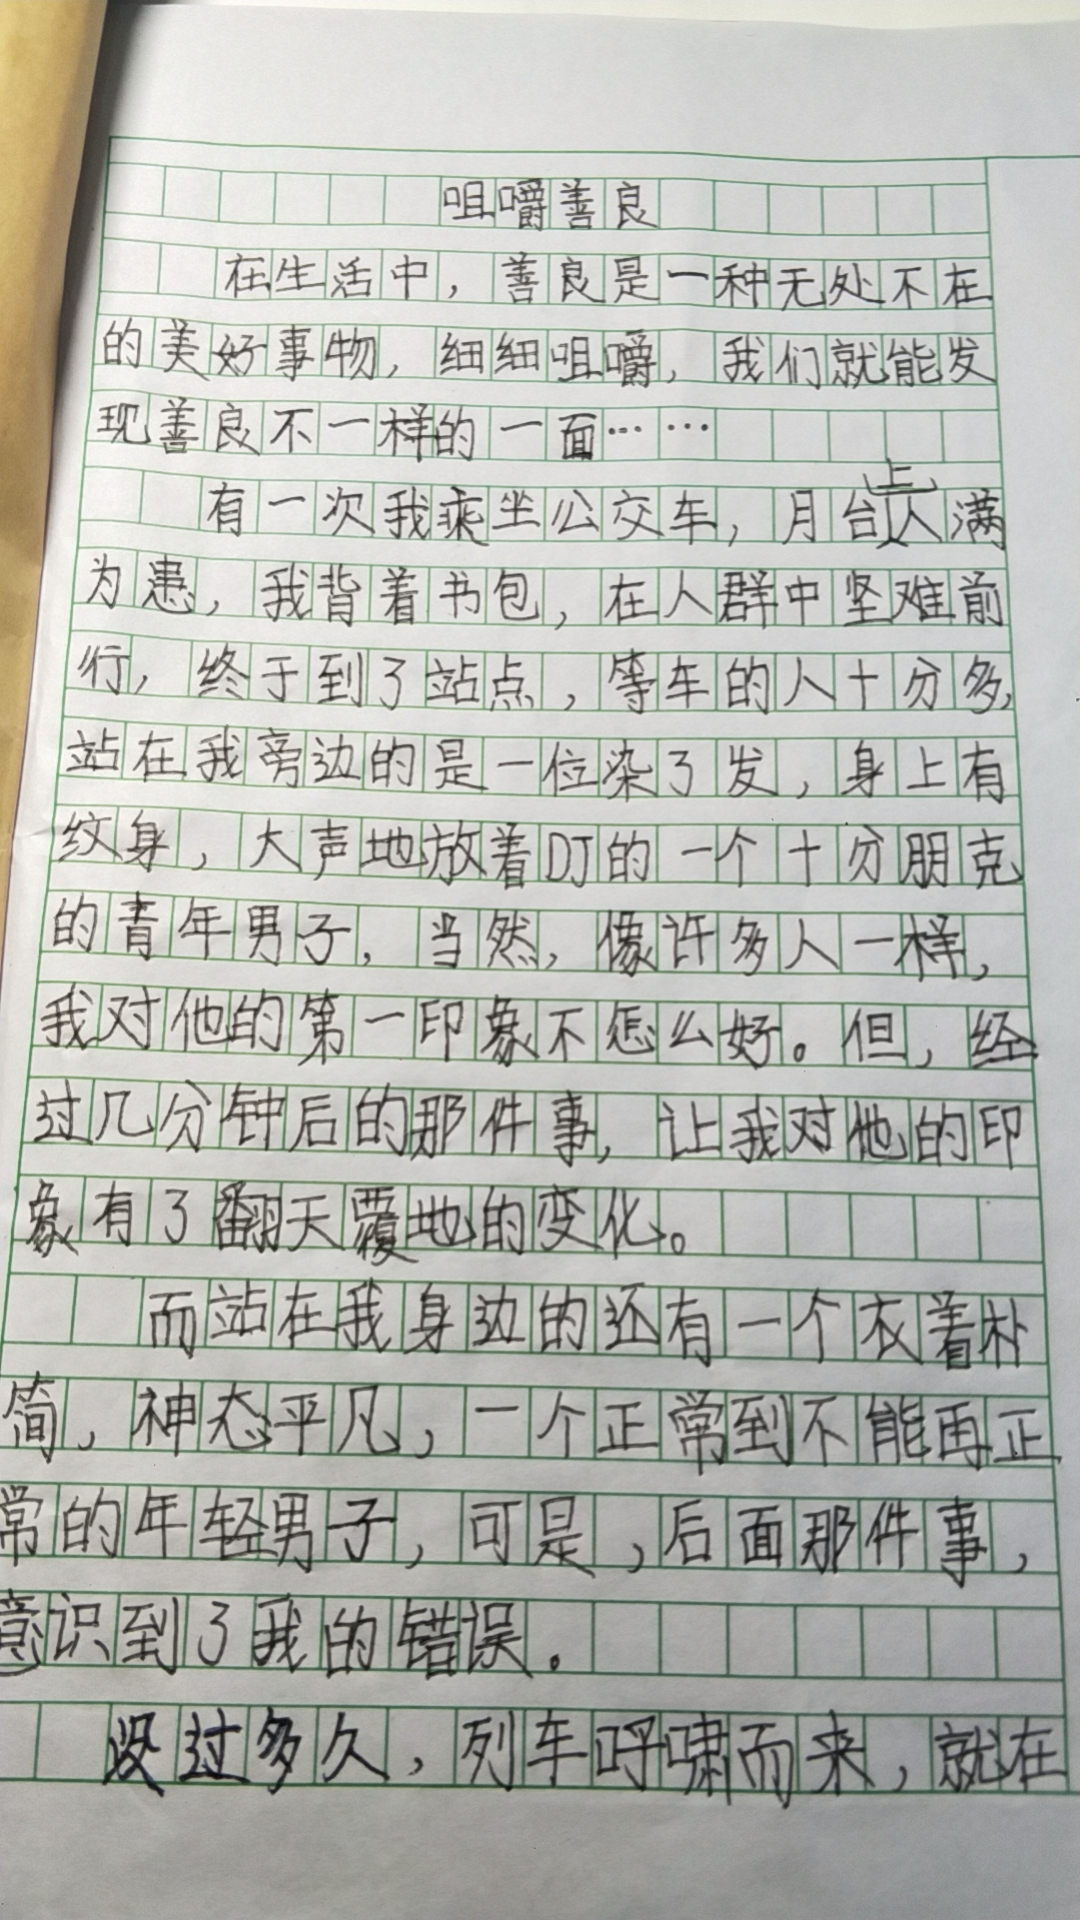 咀嚼善良
在生活中，善良是一种无处不在
的美好事物，细细咀嚼，我们就能发
现善良不一样的一面……
有一次我乘坐公交车，月台上人满
为患，我背着书包，在人群中坚难前
行，终于到了站点，等车的人十分多，
站在我旁边的是一位染了发，身上有
纹身，大声地放着DJ的一个十分朋克
的青年男子，当然，像许多人一样，
我对他的第一印象不怎么好。但，经
过几分钟后的那件事，让我对他的印
象有了翻天覆地的变化。
而站在我身边的还有一个衣着朴
简，神态平凡，一个正常到不能再正
常的年轻男子，可是，后面那件事，
意识到了我的错误。
没过多久，列车呼啸而来，就在